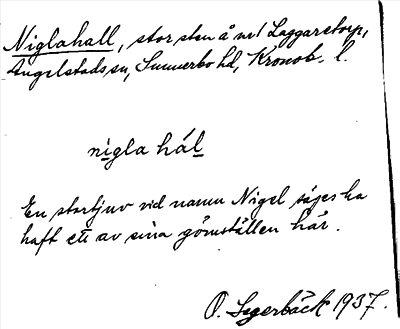 Niglahall, stor sten å nr 1 Laggaretorp,
Angelstads sn, Sunnerbo hd, Kronob. l.
nigla hál
En stortjuv vid namn Nigel säges ha
haft ett av sina gömställen här.
O. Segerbäck 1937.